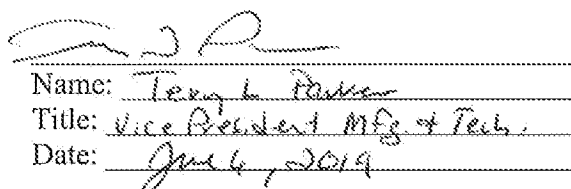 Name: Terry L Parker
Title: Vice President Mfg. & Tech.
Date: June 6, 2019